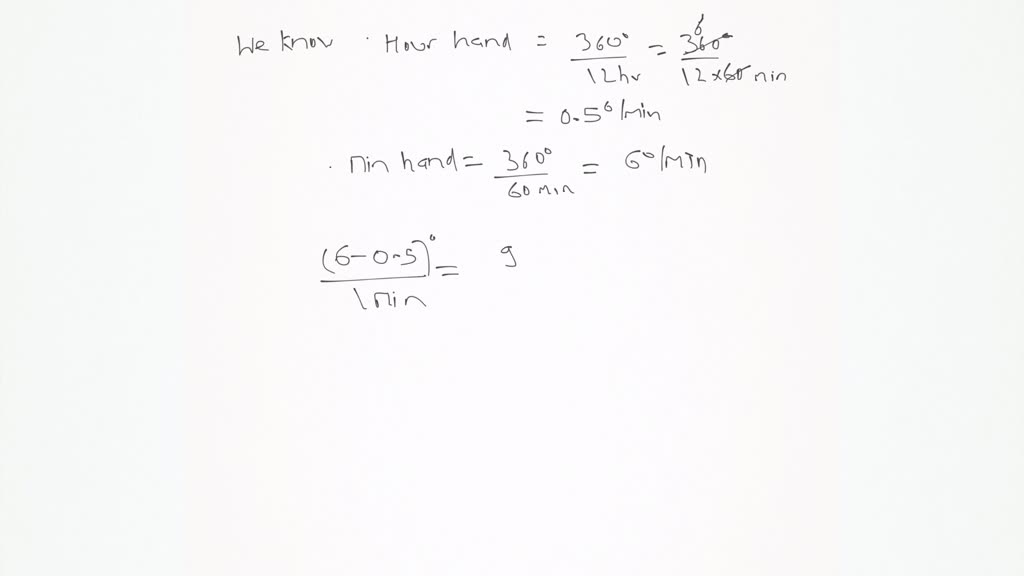 We know · Hour hand = 360° / 12hr = 360° / 12×60 min 6
= 0.5°/min
· Min hand = 360° / 60 min = 6°/Min
(6-0.5)° / 1 min = 9